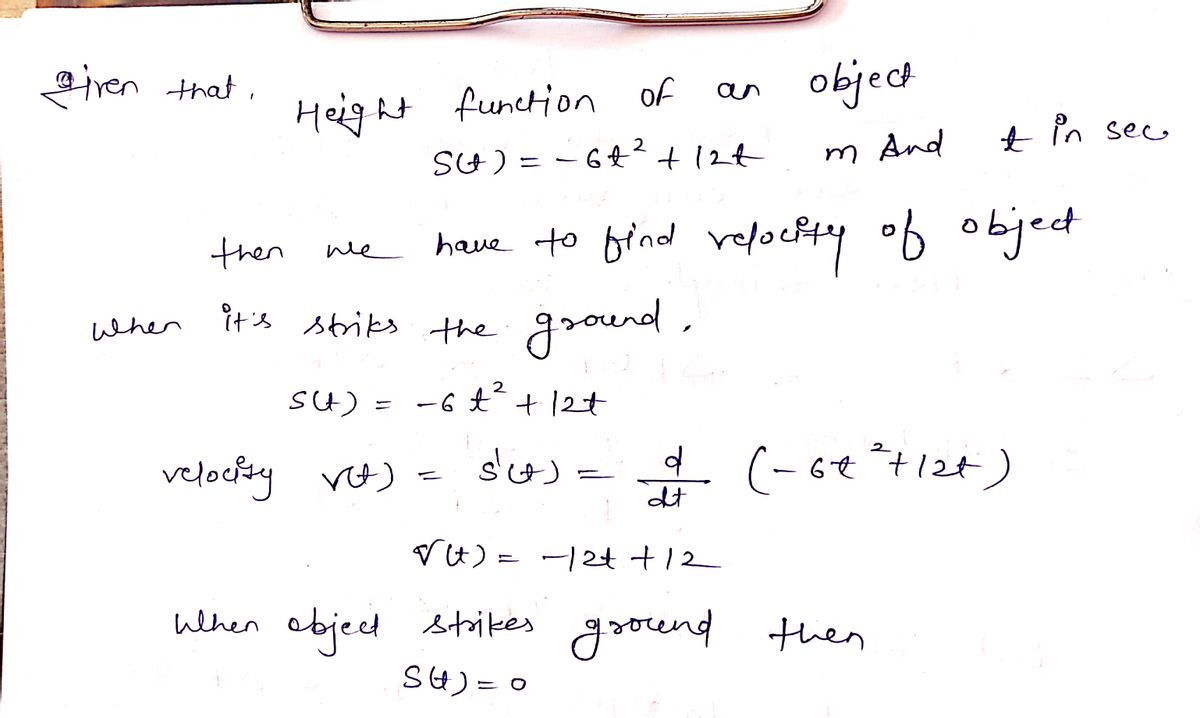 given that,
Height function of an object
S(t) = -6t² + 12t m And t in sec
then we have to find velocity of object
when it's striks the ground.
S(t) = -6t² + 12t
velocity v(t) = s'(t) = d/dt (-6t² + 12t)
V(t) = -12t + 12
When object strikes ground then
S(t) = 0